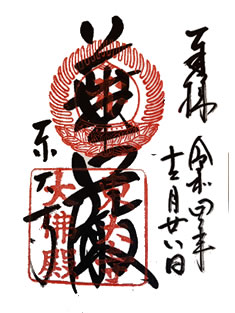 奉拝
令和四年
十二月廿八日
華厳
東大寺
大佛殿